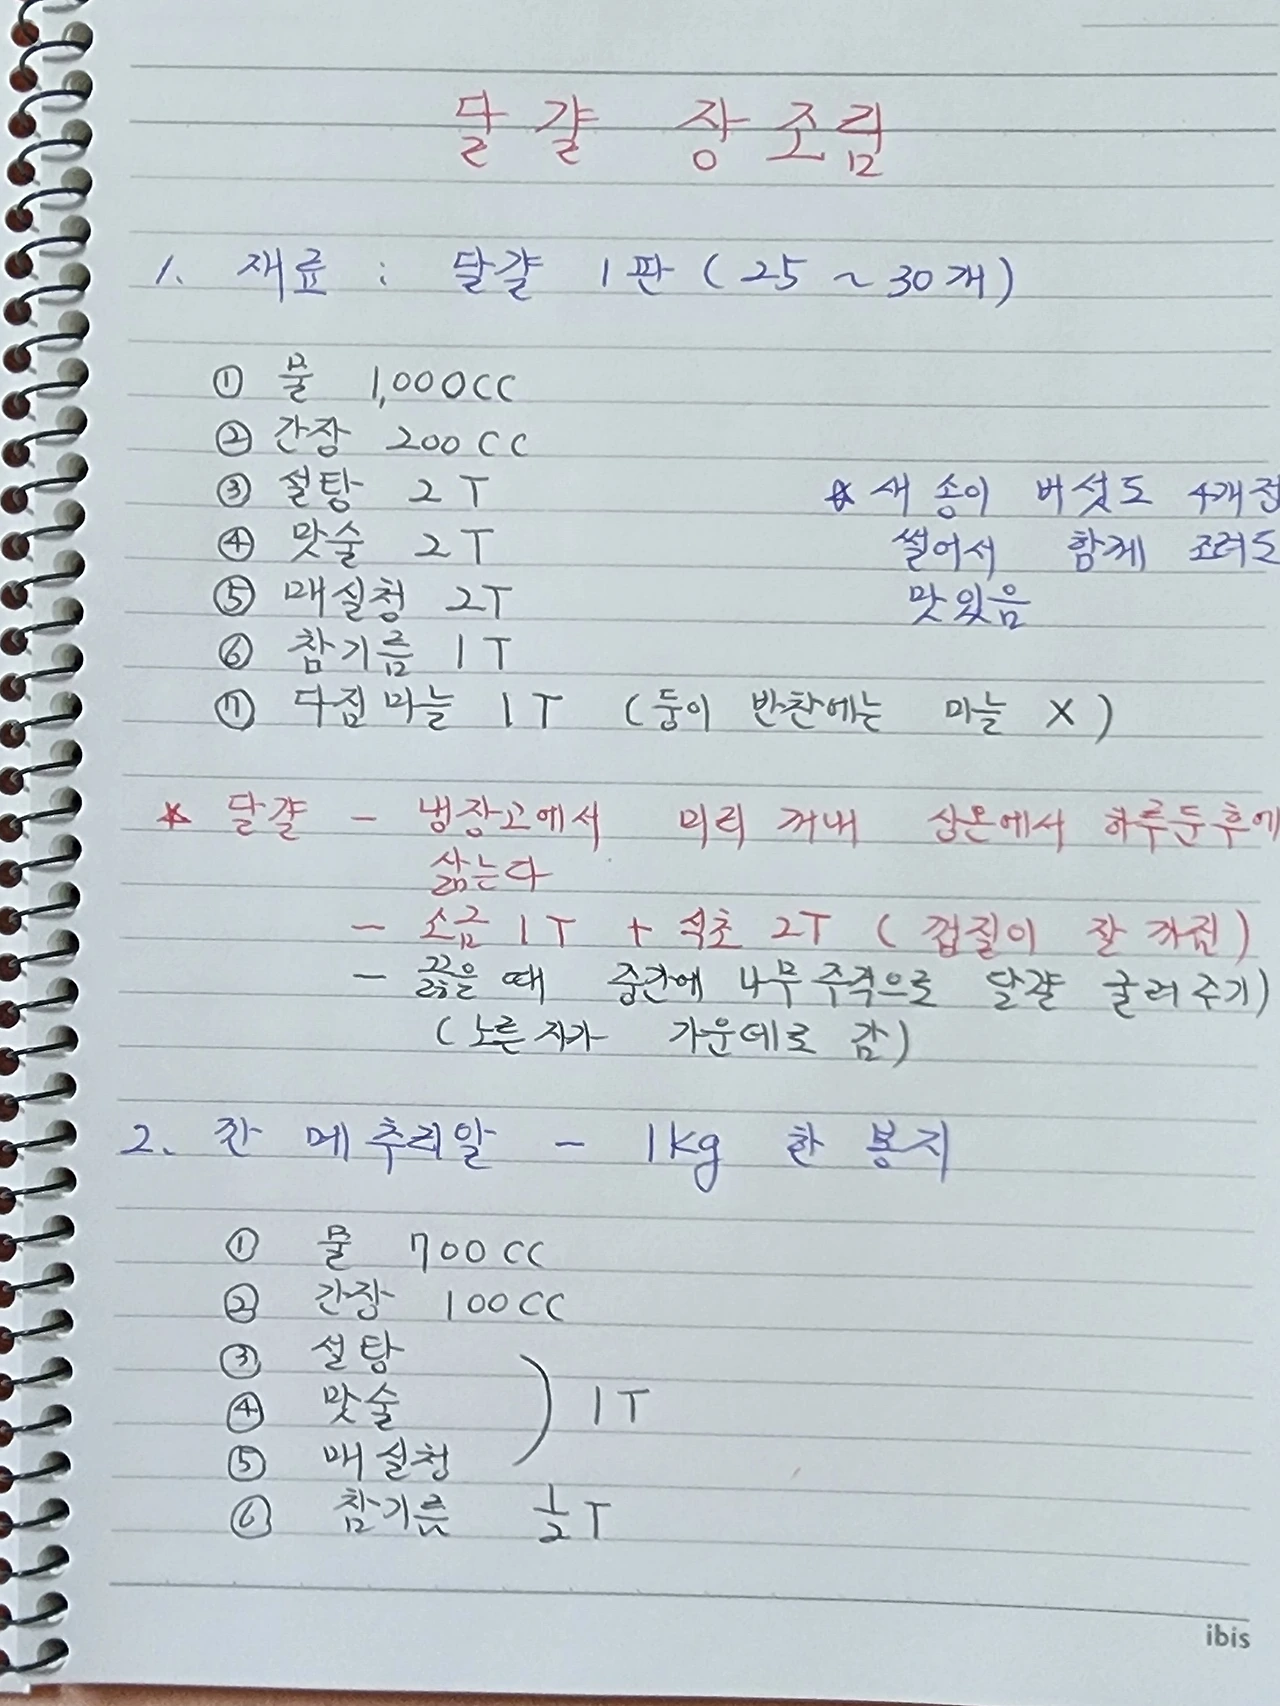 달걀 장조림
1. 재료 : 달걀 1판 (25 ~ 30개)
① 물 1,000CC
② 간장 200CC
③ 설탕 2T
④ 맛술 2T
⑤ 매실청 2T
⑥ 참기름 1T
⑦ 다짐마늘 1T (둥이 반찬에는 마늘 X)
☆ 새송이 버섯도 4개정
썰어서 함께 조려도
맛있음
* 달걀 - 냉장고에서 미리 꺼내 상온에서 하루둔후에
삶는다
- 소금 1T + 식초 2T (껍질이 잘 까짐)
- 끓을 때 중간에 나무주걱으로 달걀 굴려주기)
(노른자가 가운데로 감)
2. 깐 메추리알 - 1kg 한 봉지
① 물 700CC
② 간장 100CC
③ 설탕
④ 맛술 ) 1T
⑤ 매실청
⑥ 참기름 1/2 T
ibis